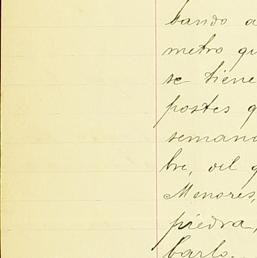 bando a
metro qu
se tiene
postes q
semana
bre, del q
Menores,
piedra,
barlo.